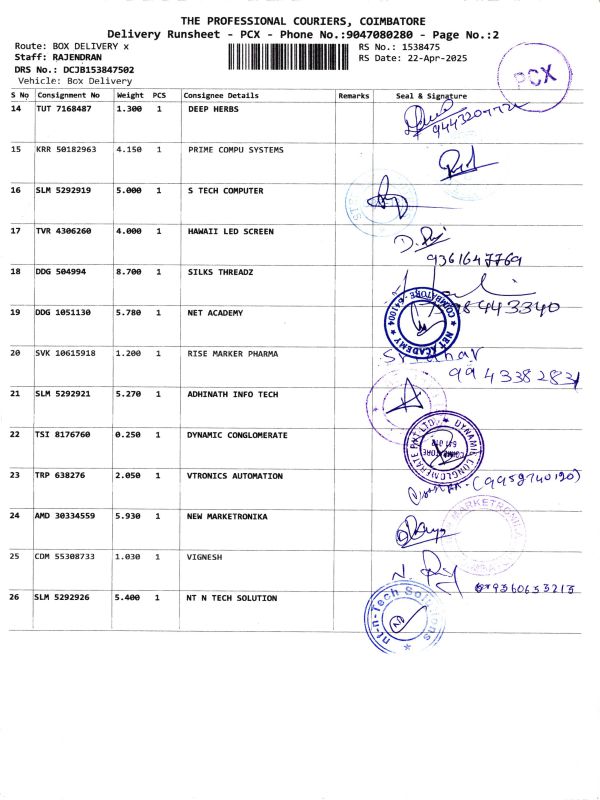 THE PROFESSIONAL COURIERS, COIMBATORE
Delivery Runsheet - PCX - Phone No.:9047080280 - Page No.:2
Route: BOX DELIVERY x
RS No.: 1538475
Staff: RAJENDRAN
RS Date: 22-Apr-2025
DRS No.: DCJB153847502
Vehicle: Box Delivery
PCX
S No Consignment No Weight PCS Consignee Details Remarks Seal & Signature
14 TUT 7168487 1.300 1 DEEP HERBS
15 KRR 50182963 4.150 1 PRIME COMPU SYSTEMS
16 SLM 5292919 5.000 1 S TECH COMPUTER
17 TVR 4306260 4.000 1 HAWAII LED SCREEN
9361647769
18 DDG 504994 8.700 1 SILKS THREADZ
19 DDG 1051130 5.780 1 NET ACADEMY
NET ACADEMY COIMBATORE - 641004
20 SVK 10615918 1.200 1 RISE MARKER PHARMA
21 SLM 5292921 5.270 1 ADHINATH INFO TECH
22 TSI 8176760 0.250 1 DYNAMIC CONGLOMERATE
DYNAMIC CONGLOMERATE PVT LTD
23 TRP 638276 2.050 1 VTRONICS AUTOMATION
24 AMD 30334559 5.930 1 NEW MARKETRONIKA
MARKETRONIKA
25 CDM 55308733 1.030 1 VIGNESH
9360653213
26 SLM 5292926 5.400 1 NT N TECH SOLUTION
nt-n-Tech Solutions